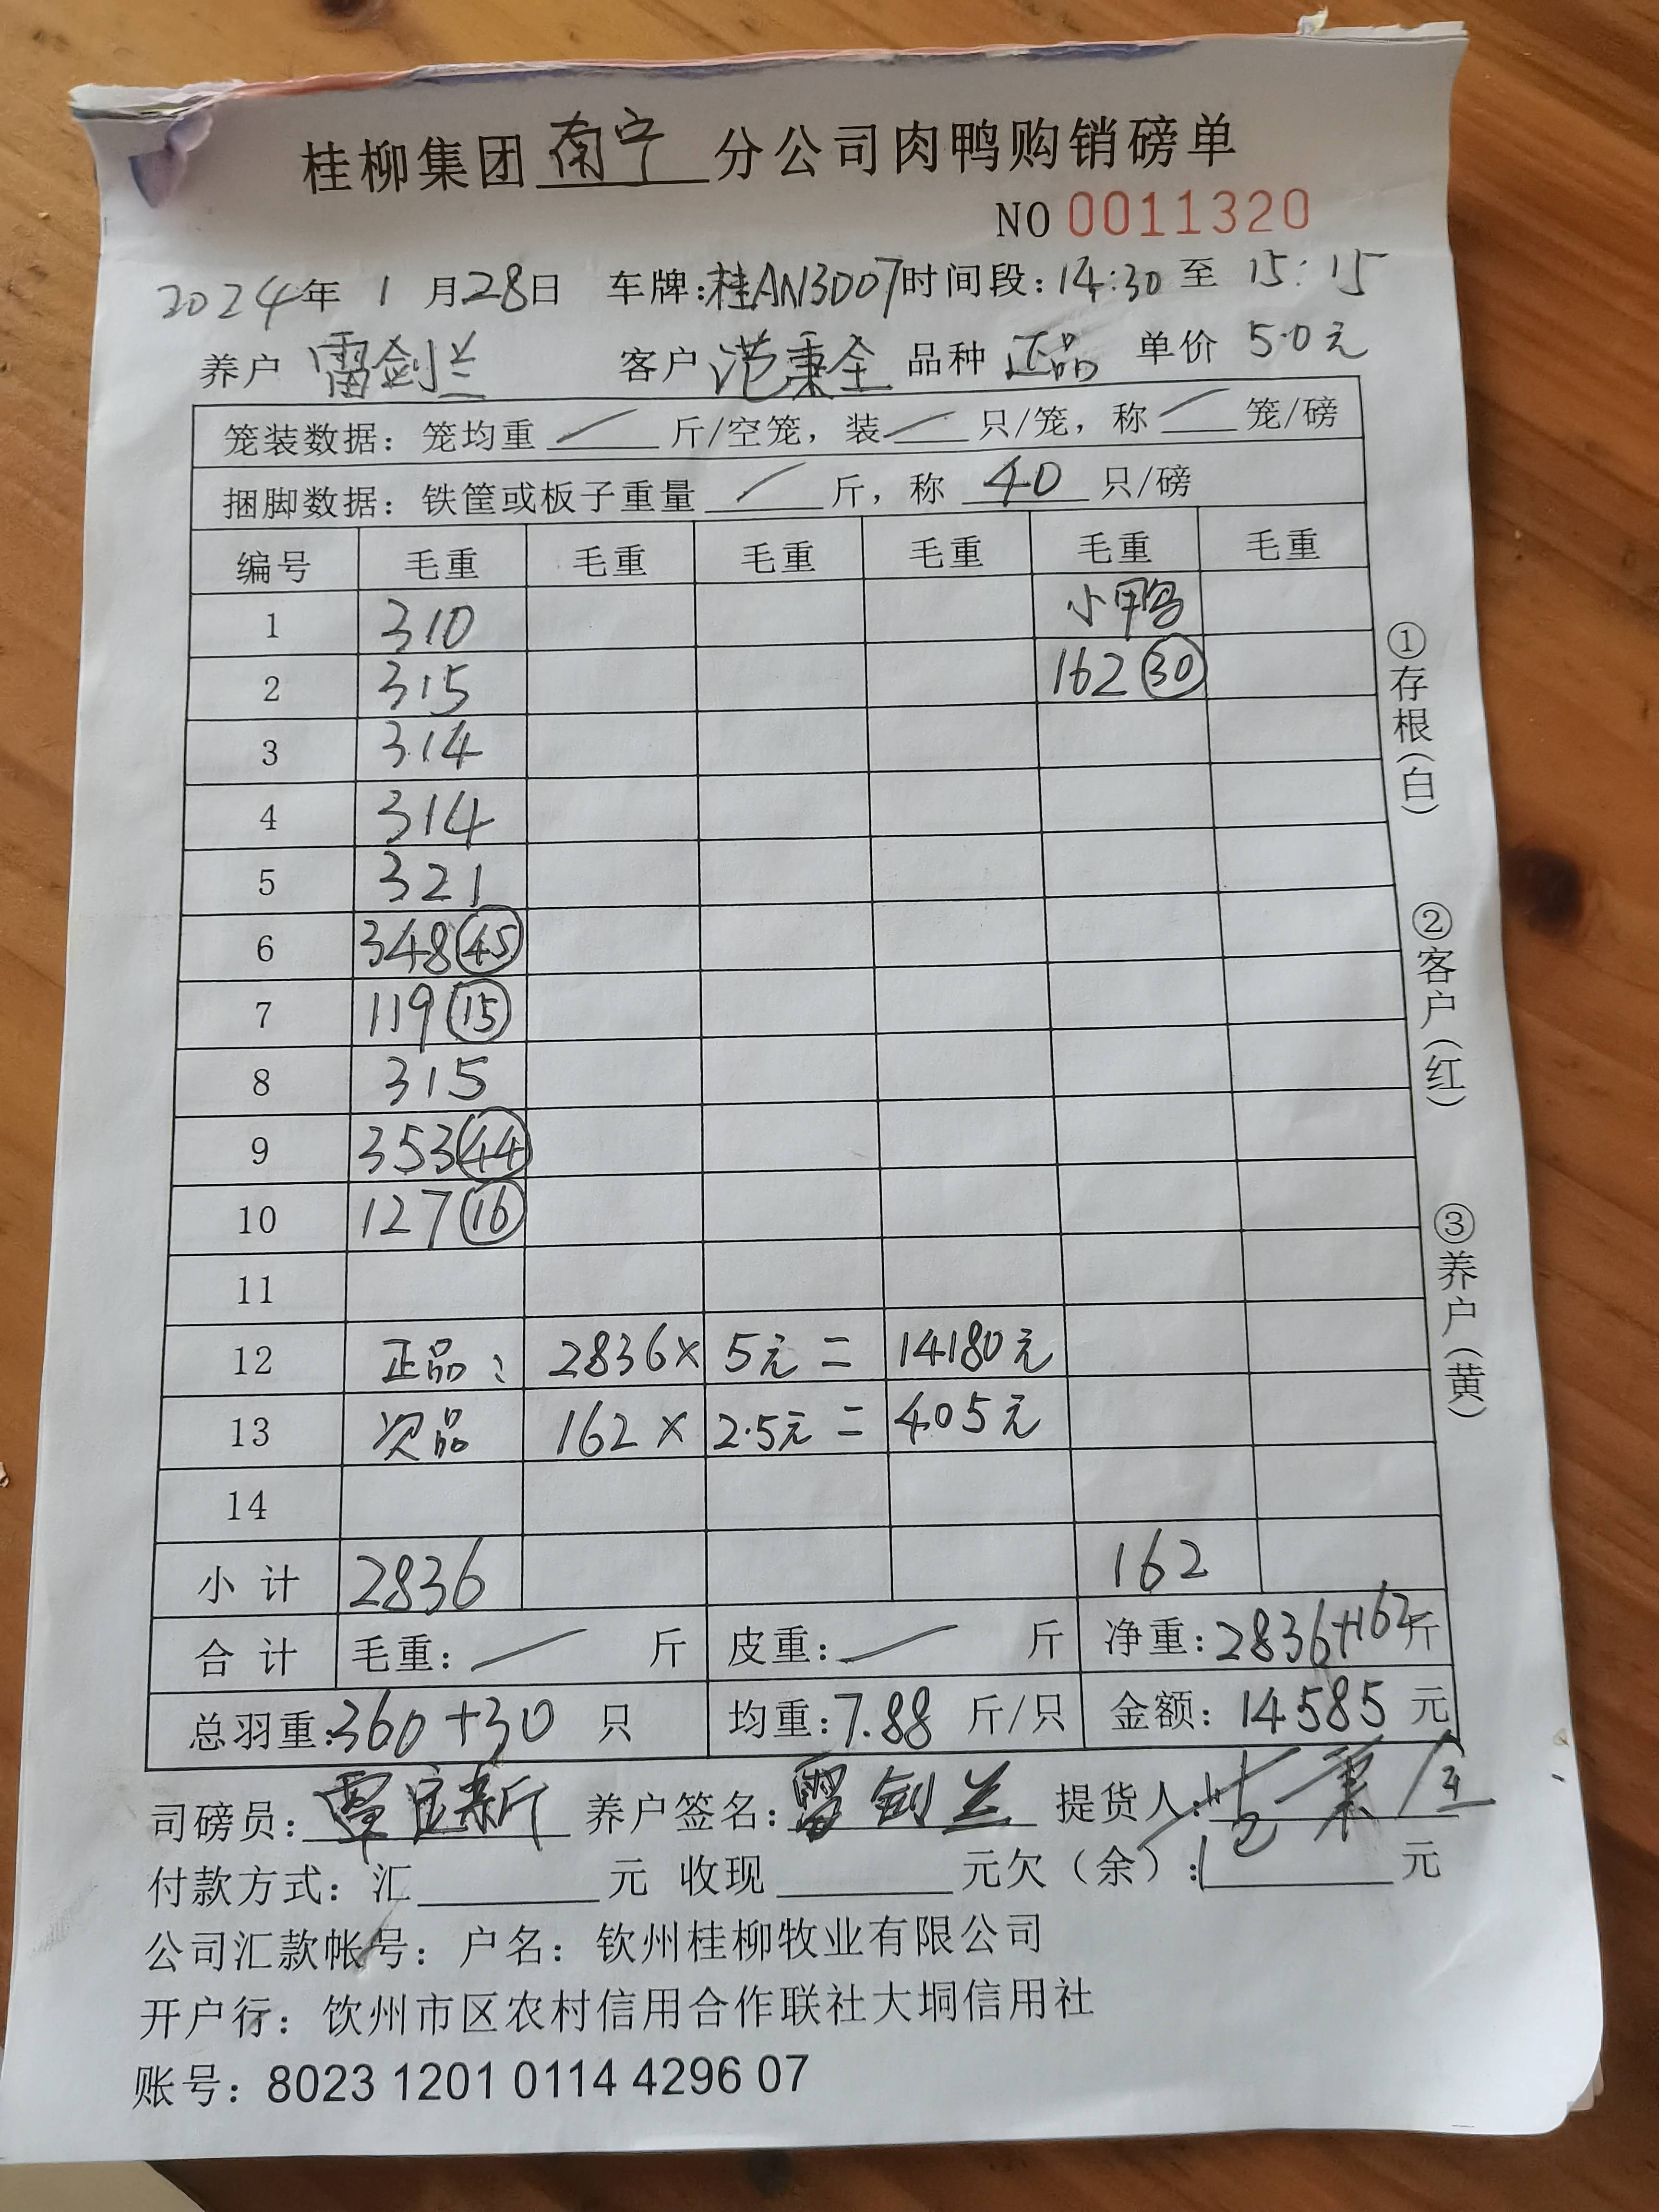 桂柳集团南宁分公司肉鸭购销磅单
NO 0011320
2024年 1 月28日 车牌:桂AN3007时间段:14:30 至 15:15
养户 雷剑兰 客户 范秉全 品种 正品 单价 5.0元
笼装数据: 笼均重 / 斤/空笼, 装 / 只/笼, 称 / 笼/磅
捆脚数据: 铁筐或板子重量 / 斤, 称 40 只/磅
编号 毛重 毛重 毛重 毛重 毛重 毛重
1 310 小鸭
2 315 162 30
3 314
4 314
5 321
6 348 45
7 119 15
8 315
9 353 44
10 127 16
11
12 正品: 2836× 5元 = 14180元
13 次品 162 × 2.5元 = 405元
14
小计 2836 162
合计 毛重: / 斤 皮重: / 斤 净重: 2836+162斤
总羽重:360+30 只 均重:7.88 斤/只 金额: 14585 元
司磅员: 养户签名:雷剑兰 提货人:范秉全
付款方式: 汇 元 收现 元欠(余): 元
公司汇款帐号: 户名: 钦州桂柳牧业有限公司
开户行: 饮州市区农村信用合作联社大垌信用社
账号: 8023 1201 0114 4296 07
①存根(白)
②客户(红)
③养户(黄)